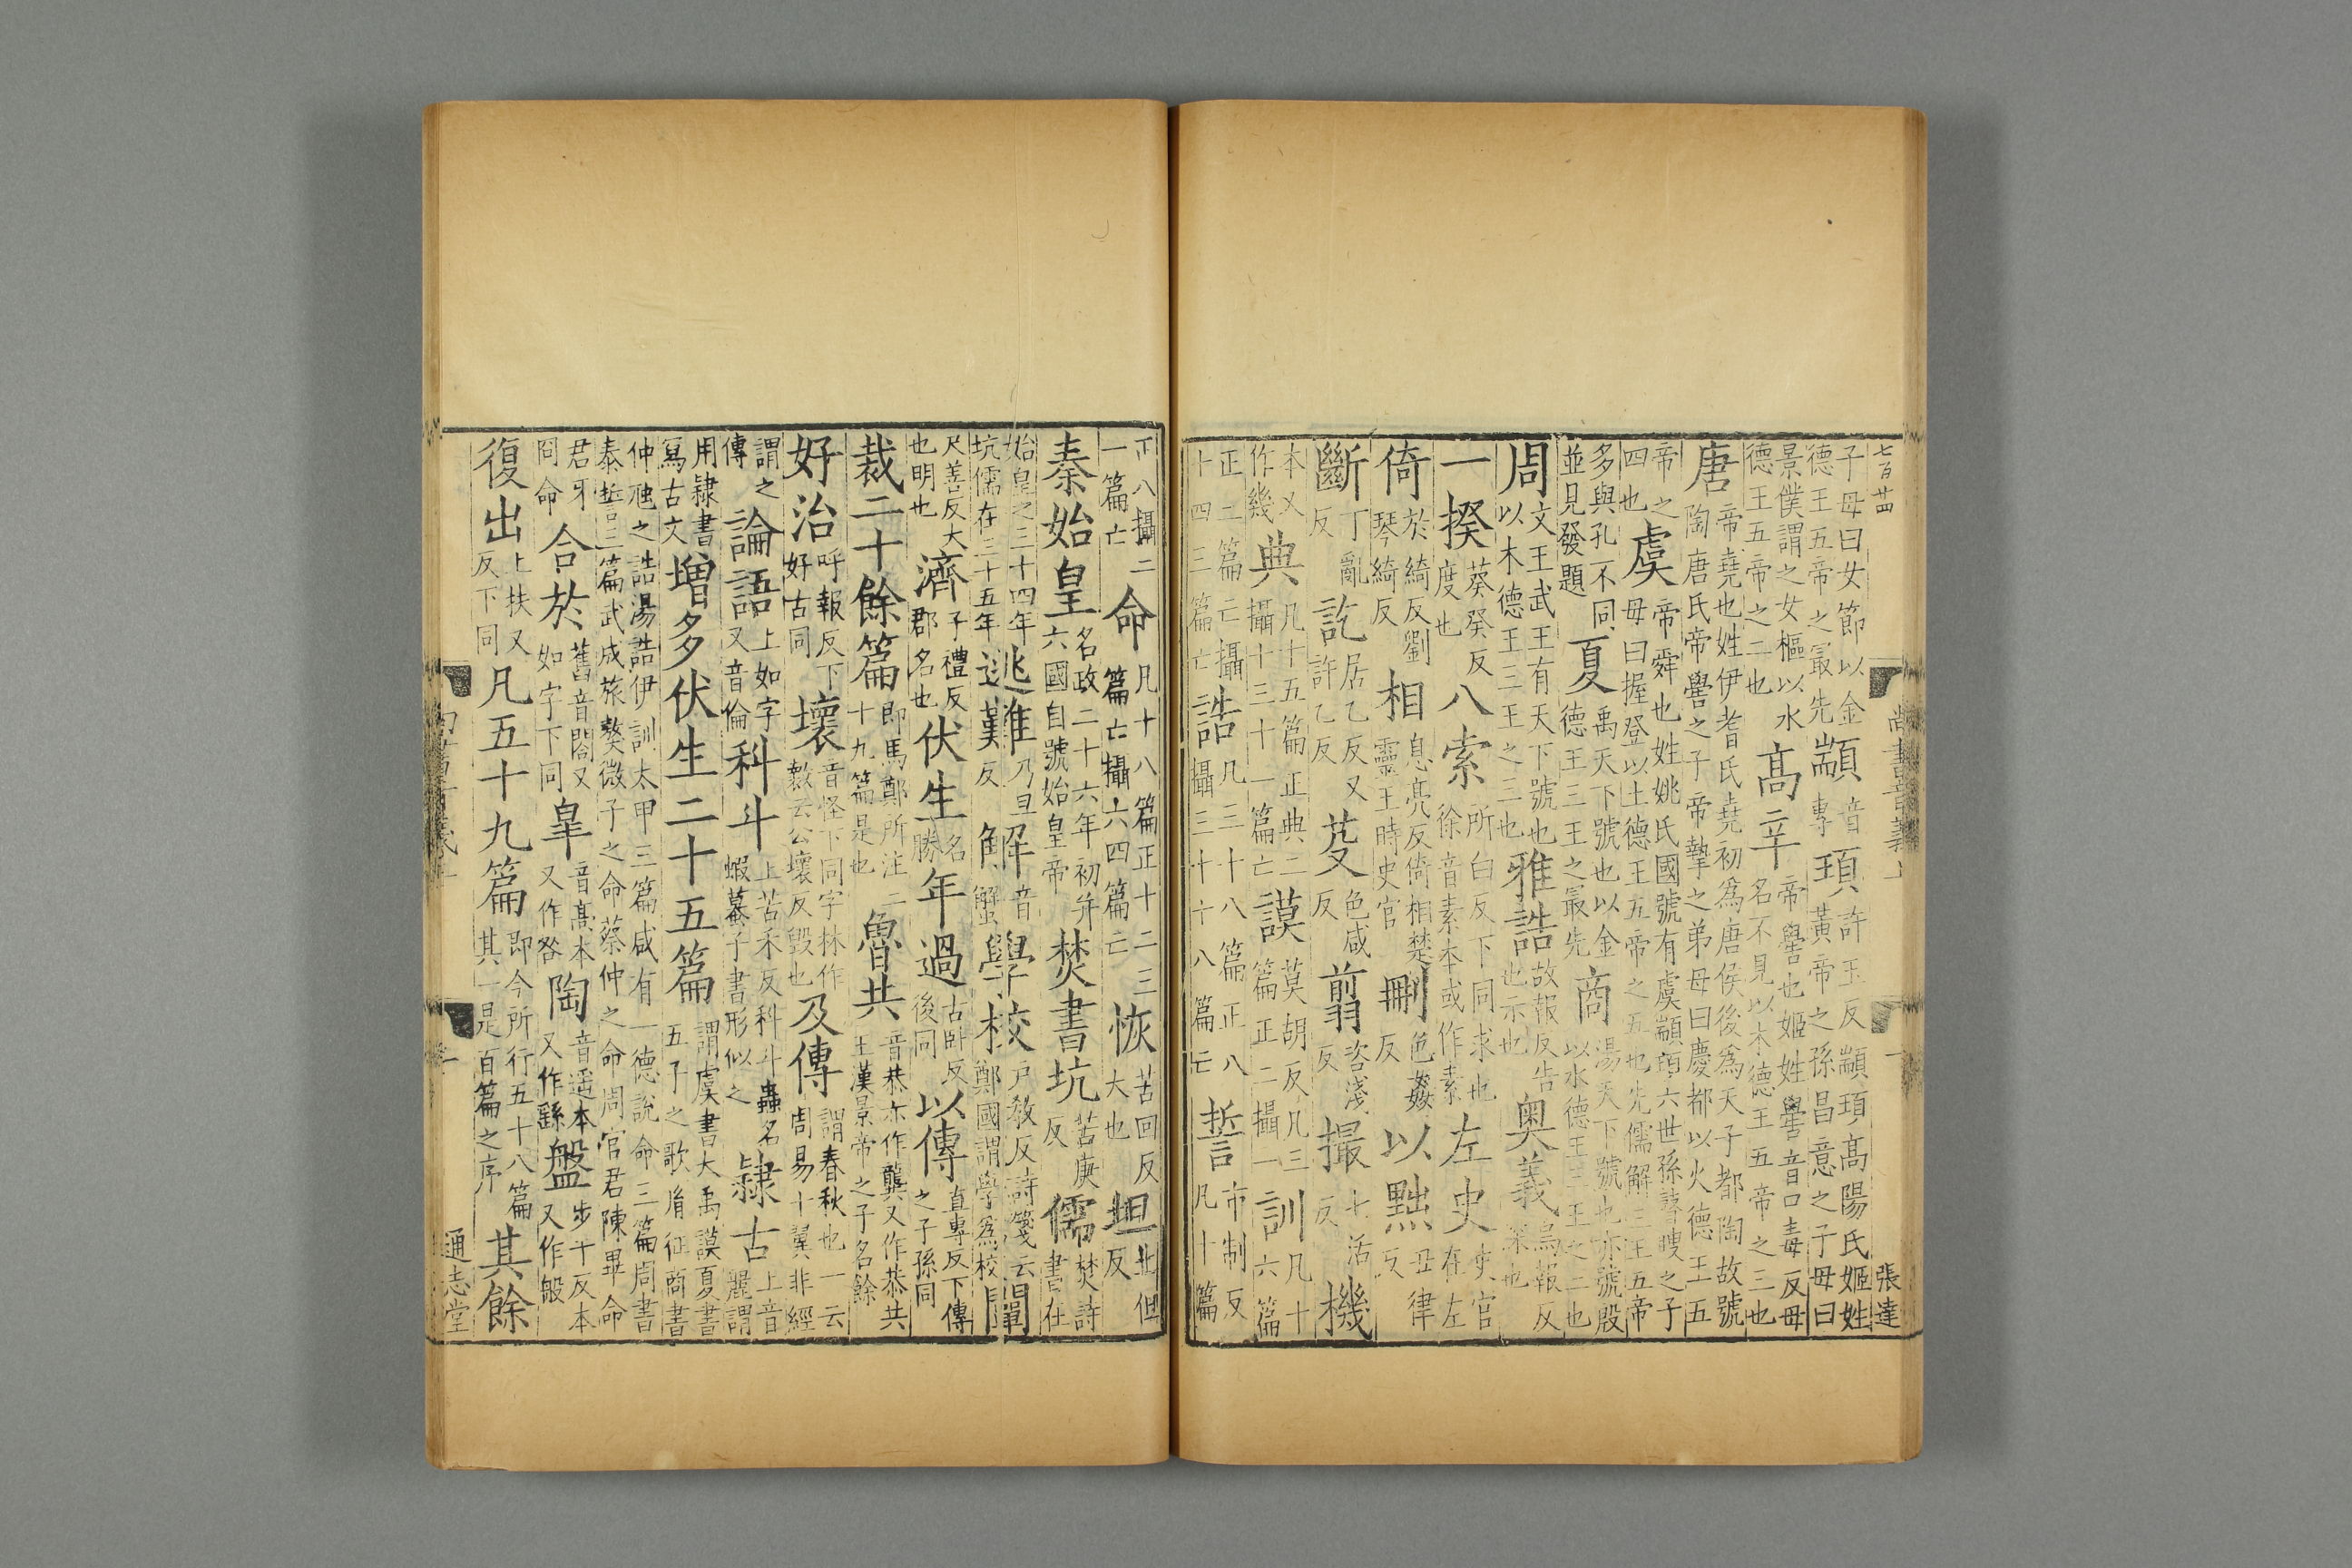 七百廿四　尚書音義上　一　張達
子母曰女節以金德王五帝之最先顓音專頊許玉反顓頊高陽氏姬姓黃帝之孫昌意之子母曰
景僕謂之女樞以水德王五帝之二也高辛帝嚳也姬姓嚳音口毒反母名不見以木德王五帝之三也
唐帝堯也姓伊耆氏堯初爲唐侯後爲天子都陶故號陶唐氏帝嚳之子帝摯之弟母曰慶都以火德王五
帝之四也虞帝舜也姓姚氏國號有虞顓頊六世孫瞽瞍之子母曰握登以土德王五帝之五也先儒解三王五帝
多與孔不同並見發題夏禹天下號也以金德王三王之最先商湯天下號也亦號殷以水德王三王之二也
周文王武王有天下號也以木德王三王之三也雅誥故報反告也示也奧義烏報反深也
一揆葵癸反度也八索所白反下同求也徐音素本或作素左史史官在左
倚於綺反劉琴綺反相息亮反倚相楚靈王時史官刪色姦反以黜丑律反
斷丁亂反訖居乙反又許乙反芟色咸反翦咨淺反撮七活反機
本又作幾典凡十五篇正典二攝十三十一篇亡謨莫胡反凡三篇正二攝一訓凡十六篇
正二篇亡攝十四三篇亡誥凡三十八篇正八攝三十十八篇亡誓市制反凡十篇
正八攝二一篇亡命凡十八篇正十二三篇亡攝六四篇亡恢苦回反大也坦土但反
秦始皇名政二十六年初并六國自號始皇帝焚書坑苦庚反儒焚詩書在
始皇之三十四年坑儒在三十五年逃難乃旦反解音蟹學校戶教反詩箋云鄭國謂學爲校闡
尺善反大也明也濟子禮反郡名也伏生名勝年過古臥反後同以傳直專反下傳之子孫同
裁二十餘篇即馬鄭所注二十九篇是也魯共音恭亦作龔又作恭共王漢景帝之子名餘
好治呼報反下好古同壞音怪下同字林作𣀤云公壞反毀也及傳謂春秋也一云周易十翼非經
謂之傳論語上如字又音倫科斗上苦禾反科斗蟲名蝦蟇子書形似之隸古上音麗謂
用隸書寫古文增多伏生二十五篇謂虞書大禹謨夏書五子之歌胤征商書
仲虺之誥湯誥伊訓太甲三篇咸有一德說命三篇周書泰誓三篇武成旅獒微子之命蔡仲之命周官君陳畢命
君牙冏命合於舊音閤又如字下同皋音高本又作咎陶音遥本又作繇盤步干反本又作般
復出上扶又反下同凡五十九篇即今所行五十八篇其一是百篇之序其餘
通志堂